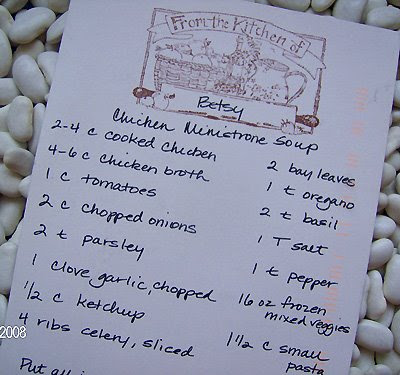 From the Kitchen of
Betsy
Chicken Ministrone Soup
2-4 c cooked chicken
4-6 c chicken broth
1 c tomatoes
2 c chopped onions
2 t parsley
1 clove garlic, chopped
1/2 c ketchup
4 ribs celery, sliced
2 bay leaves
1 t oregano
2 t basil
1 T salt
1 t pepper
16 oz frozen
mixed veggies
1 1/2 c small
pasta
Put all
2008